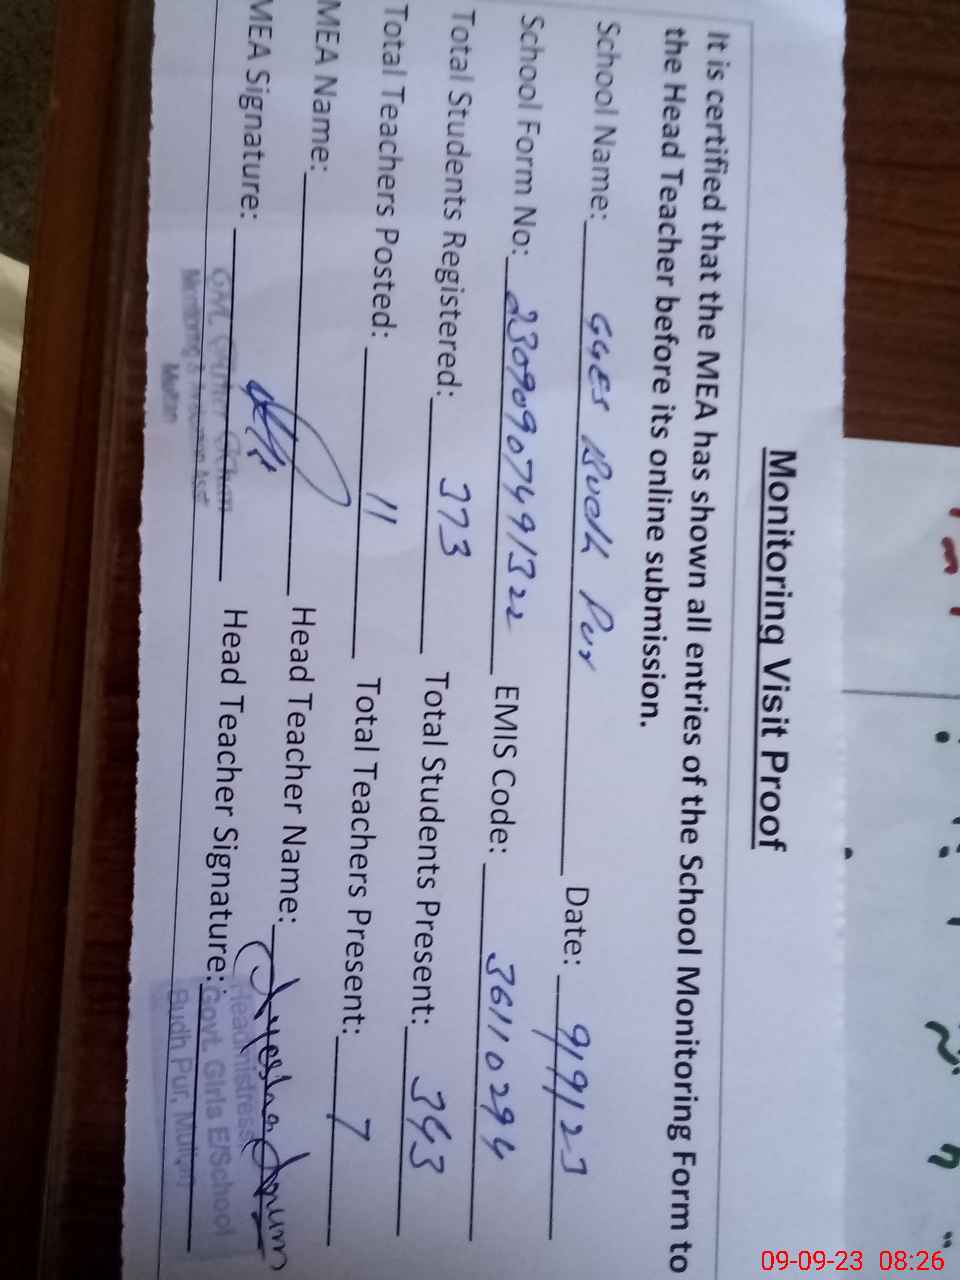 Monitoring Visit Proof
It is certified that the MEA has shown all entries of the School Monitoring Form to
the Head Teacher before its online submission.
School Name: GGES Budh Pur Date: 9/9/23
School Form No: 23090907491322 EMIS Code: 36110294
Total Students Registered: 373 Total Students Present: 343
Total Teachers Posted: 11 Total Teachers Present: 7
MEA Name: Head Teacher Name:
MEA Signature: Head Teacher Signature:
Headmistress
Govt. Girls E/School
Budh Pur, Multan
Multan
09-09-23 08:26